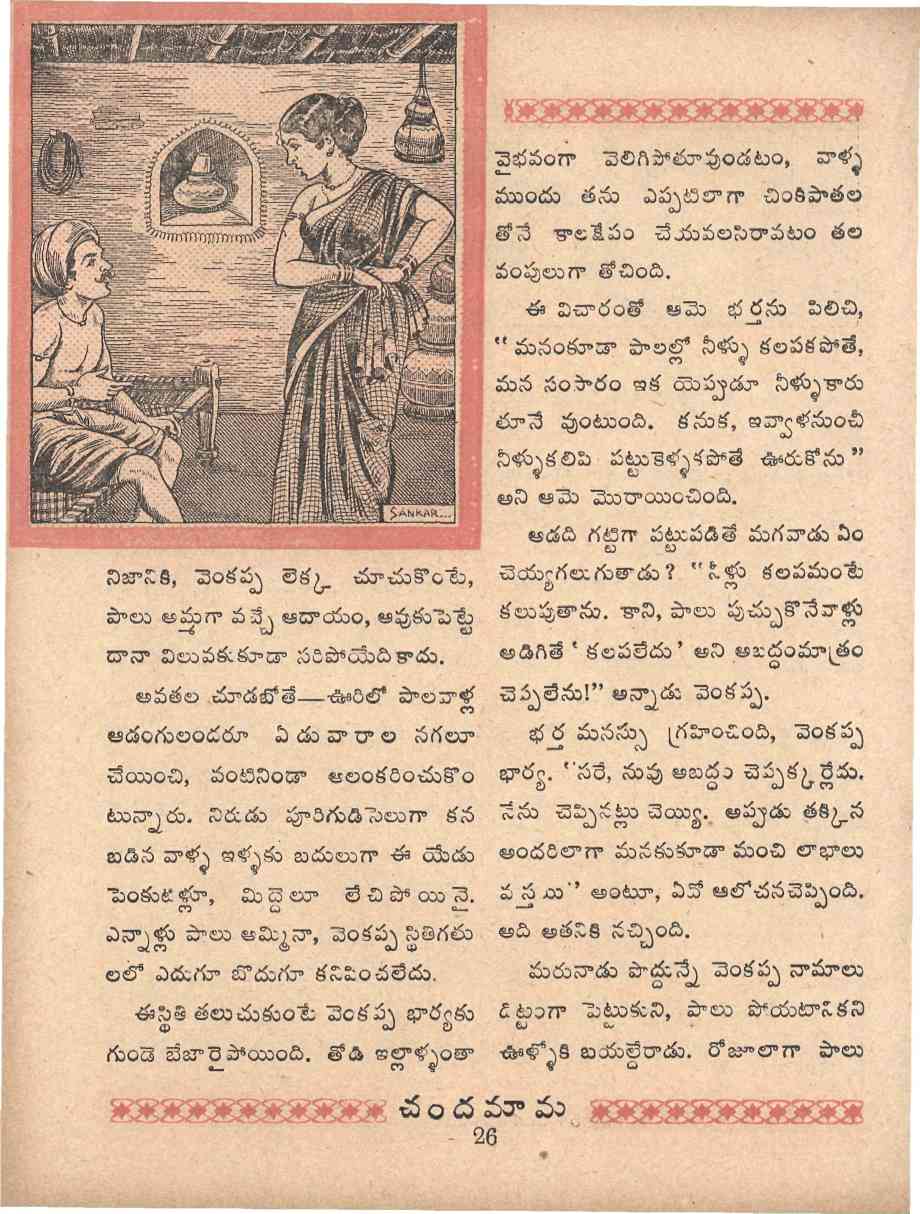 SANKAR...
నిజానికి, వెంకప్ప లెక్క చూచుకొంటే,
పాలు అమ్మగా వచ్చే ఆదాయం, ఆవుకుపెట్టే
దానా విలువకుకూడా సరిపోయేదికాదు.
అవతల చూడబోతే—ఊరిలో పాలవాళ్ల
ఆడంగులందరూ ఏడువారాల నగలూ
చేయించి, వంటినిండా అలంకరించుకొం
టున్నారు. నిరుడు పూరిగుడిసెలుగా కన
బడిన వాళ్ళ ఇళ్ళకు బదులుగా ఈ యేడు
పెంకుటిళ్లూ, మిద్దెలూ లేచిపోయినై.
ఎన్నాళ్లు పాలు అమ్మినా, వెంకప్ప స్థితిగతు
లలో ఎదుగూ బొదుగూ కనిపించలేదు.
ఈస్థితి తలుచుకుంటే వెంకప్ప భార్యకు
గుండె బేజారైపోయింది. తోడి ఇల్లాళ్ళంతా
వైభవంగా వెలిగిపోతూవుండటం, వాళ్ళ
ముందు తను ఎప్పటిలాగా చింకిపాతల
తోనే కాలక్షేపం చేయవలసిరావటం తల
వంపులుగా తోచింది.
ఈ విచారంతో ఆమె భర్తను పిలిచి,
“మనంకూడా పాలల్లో నీళ్ళు కలపకపోతే,
మన సంసారం ఇక యెప్పుడూ నీళ్ళుకారు
తూనే వుంటుంది. కనుక, ఇవ్వాళనుంచీ
నీళ్ళుకలిపి పట్టుకెళ్ళకపోతే ఊరుకోను”
అని ఆమె మొరాయించింది.
ఆడది గట్టిగా పట్టుపడితే మగవాడు ఏం
చెయ్యగలుగుతాడు? “నీళ్లు కలపమంటే
కలుపుతాను. కాని, పాలు పుచ్చుకొనేవాళ్లు
అడిగితే ‘కలపలేదు’ అని అబద్ధంమాత్రం
చెప్పలేను!” అన్నాడు వెంకప్ప.
భర్త మనస్సు గ్రహించింది, వెంకప్ప
భార్య. “సరే, నువు అబద్ధం చెప్పక్కర్లేదు.
నేను చెప్పినట్లు చెయ్యి. అప్పుడు తక్కిన
అందరిలాగా మనకుకూడా మంచి లాభాలు
వస్తయి” అంటూ, ఏవో ఆలోచనచెప్పింది.
అది అతనికి నచ్చింది.
మరునాడు పొద్దున్నే వెంకప్ప నామాలు
దిట్టంగా పెట్టుకుని, పాలు పోయటానికని
ఊళ్ళోకి బయల్దేరాడు. రోజూలాగా పాలు
చందమామ
26